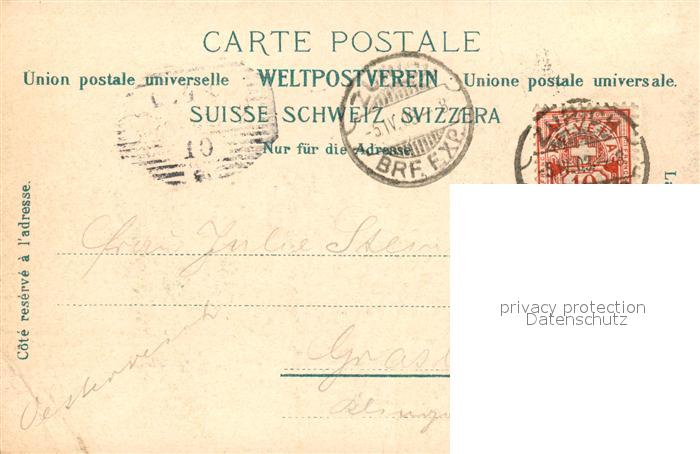 CARTE POSTALE
Union postale universelle WELTPOSTVEREIN Unione postale universale.
SUISSE SCHWEIZ SVIZZERA
Nur für die Adresse
BRF. EXP.
-5.IV.
ZÜRICH
HELVETIA
10
Côté resérvé à l'adresse.
Frau Julie
Oesterreich
privacy protection
Datenschutz